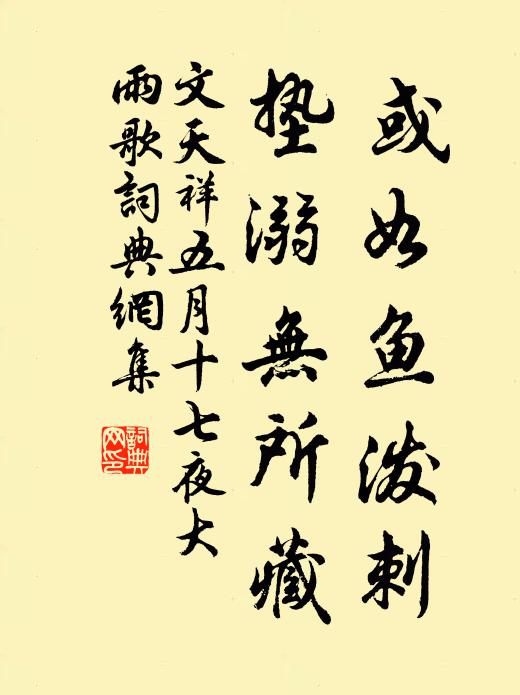 或如鱼泼刺
垫溺無所藏
文天祥五月十七夜大
雨歌詞典網集
詞典网印